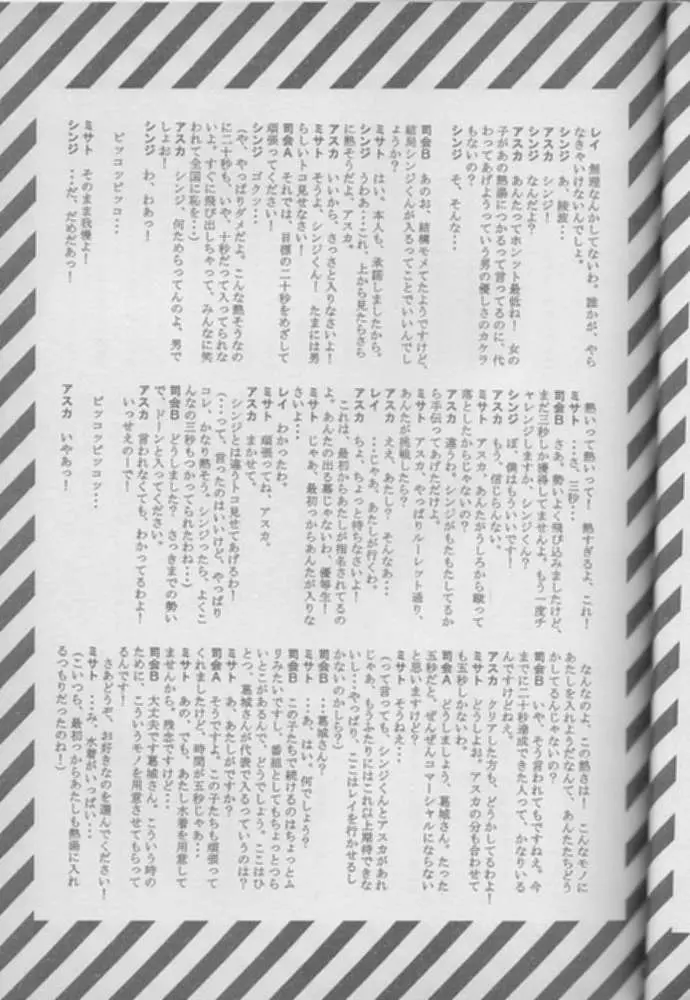 レイ 無理なんかしてないわ。誰かが、やら
なきゃいけないんでしょ。
シンジ あ、綾波…
アスカ シンジ！
シンジ なんだよ？
アスカ あんたってホンット最低ね！ 女の
子があの熱湯につかるって言ってるのに、代
わってあげようっていう男の優しさのカケラ
もないの？
シンジ そ、そんな…
司会B あのお、結構モメてたようですけど、
結局シンジくんが入るってことでいいんでし
ょうか？
ミサト はい。本人も、承諾しましたから。
シンジ うわあ…これ、上から見たらさら
に熱そうだよ、アスカ。
アスカ いいから、さっさと入りなさいよ！
ミサト そうよ、シンジくん！ たまには男
らしいトコ見せなさい！
司会A それでは、目標の二十秒をめざして
頑張ってください！
シンジ ゴクッ…
（や、やっぱりダメだよ。こんな熱そうなの
に二十秒も、いや、十秒だって入ってられな
いよ。すぐに飛び出しちゃって、みんなに笑
われて全国に恥を…）
アスカ シンジ、何ためらってんのよ、男で
しょお！
シンジ わ、わあっ！
ピッコッピッコ…
ミサト そのまま我慢よ！
シンジ …だ、だめだあっ！
熱いって熱いって！ 熱すぎるよ、これ！
ミサト …さ、三秒…
司会B さあ、勢いよく飛び込みましたけど、
まだ三秒しか獲得してませんよ。もう一度チ
ャレンジしますか、シンジくん？
シンジ ぼ、僕はもういいです！
アスカ もう、信じらんない。
ミサト アスカ、あんたがうしろから蹴って
落としたからじゃないの？
アスカ 違うわ。シンジがもたもたしてるか
ら手伝ってあげただけよ。
ミサト アスカ、やっぱりルーレット通り、
あんたが挑戦したら？
アスカ ええ、あたし？ そんなあ…
レイ …じゃあ、あたしが行くわ。
アスカ ちょ、ちょっと待ちなさいよ！
これは、最初からあたしが指名されてるの
よ。あんたの出る幕じゃないわ、優等生！
ミサト じゃあ、最初っからあんたが入りな
さいよ…
レイ わかったわ。
ミサト 頑張ってね、アスカ。
アスカ まかせて。
シンジとは違うトコ見せてあげるわ！
（…って、言ったのはいいけど、やっぱり
コレ、かなり熱そう。シンジったら、よくこ
んなの三秒もつかってられたわね…）
司会B どうしました？ さっきまでの勢い
で、ドーンと入ってください。
アスカ 言われなくても、わかってるわよ！
いっせえのーで！
ピッコッピッコッ…
アスカ いやあっ！
なんなのよ、この熱さは！ こんなモノに
あたしを入れようだなんて、あんたたちどう
かしてるんじゃないの？
司会B いや、そう言われてもですねえ。今
までに二十秒達成できた人って、かなりいる
んですけどねえ。
アスカ クリアした方も、どうかしてるわよ！
ミサト どうしよお。アスカの分も合わせて
も五秒しかないわ。
司会A どうしましょう、葛城さん。たった
五秒だと、ぜんぜんコマーシャルにならない
と思いますけど？
ミサト そうねえ…
（って言っても、シンジくんとアスカがあれ
じゃあ、もうふたりにはこれ以上期待できな
いし…やっぱり、ここはレイを行かせるし
かないのかしら？）
司会B …葛城さん？
ミサト …あ、はい、何でしょう？
司会B この子たちで続けるのはちょっとム
リみたいですし、番組としてもちょっとつら
いとこがあるんで、どうでしょう。ここはひ
とつ、葛城さんが代表で入るっていうのは？
ミサト あ、あたしがですか？
司会A そうですよ。この子たちも頑張って
くれましたけど、時間が五秒じゃあ…
ミサト あの、でも、あたし水着を用意して
ませんから、残念ですけど…
司会B 大丈夫です葛城さん。こういう時の
ために、こういうモノを用意させてもらって
るんです！
さあどうぞ、お好きなのを選んでください！
ミサト …み、水着がいっぱい…
（こいつら、最初っからあたしも熱湯に入れ
るつもりだったのね！）